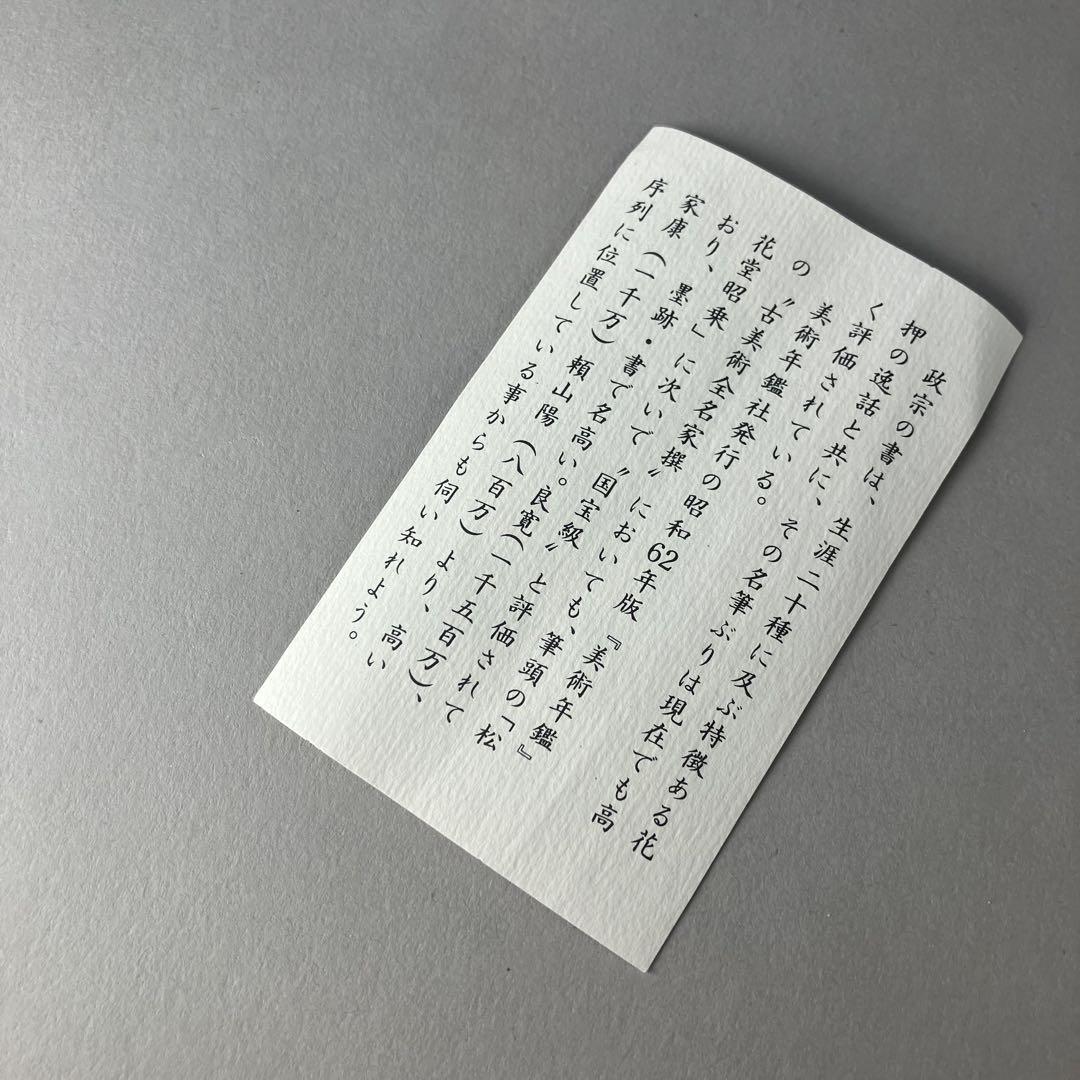 政宗の書は、生涯二十種に及ぶ特徴ある花
押の逸話と共に、その名筆ぶりは現在でも高
く評価されている。
美術年鑑社発行の昭和62年版『美術年鑑』
の〝古美術全名家撰〟においても、筆頭の「松
花堂昭乗」に次いで〝国宝級〟と評価されて
おり、墨跡・書で名高い。良寛(一千五百万)、
家康(一千万)頼山陽(八百万)より、高い
序列に位置している事からも伺い知れよう。